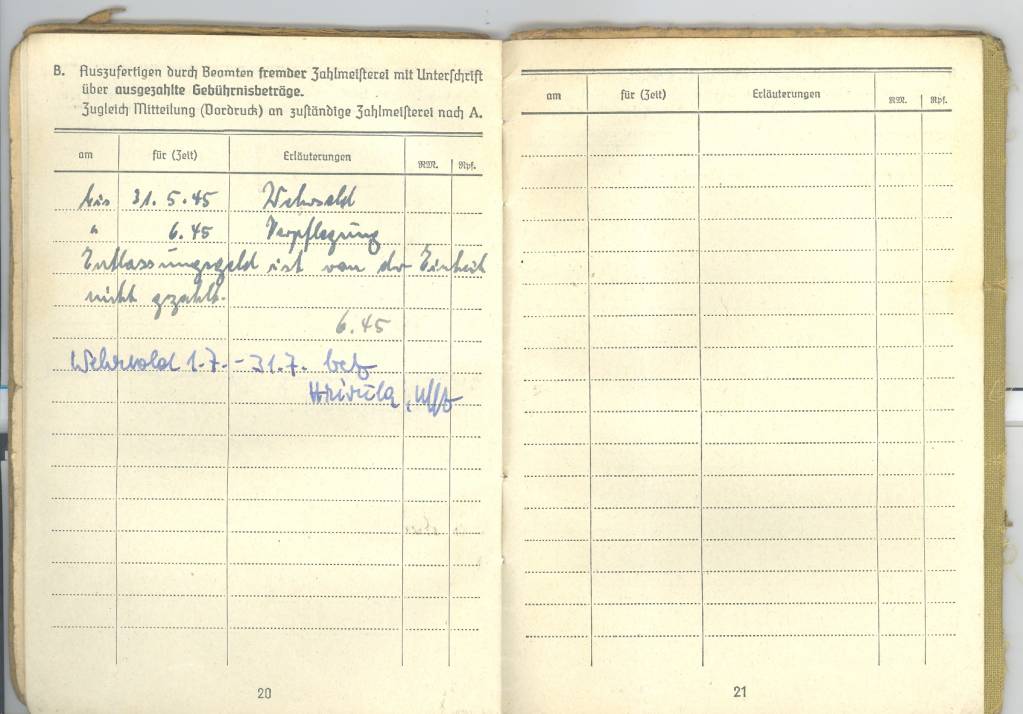 B. Auszufertigen durch Beamten fremder Zahlmeisterei mit Unterschrift
über ausgezahlte Gebührnisbeträge.
Zugleich Mitteilung (Vordruck) an zuständige Zahlmeisterei nach A.
am für (Zeit) Erläuterungen RM. Rpf.
bis 31.5.45 Wehrsold
" 6.45 Verpflegung
Entlassungsgeld ist von der Einheit
nicht gezahlt.
6.45
Wehrsold 1.7. - 31.7. bez
Uffz
20
am für (Zeit) Erläuterungen RM. Rpf.
21